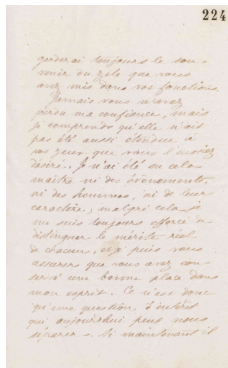 224
garderai toujours le sou-
venir du zèle que vous
avez mis dans vos fonctions.
Jamais vous n'avez
perdu ma confiance, mais
je comprends qu'elle n'ait
pas été aussi étendue à
vos yeux que vous l'eussiez
désiré. Je n'ai été en cela
maître ni des événements,
ni des hommes, ni de leur
caractère, malgré cela je
me suis toujours efforcé de
distinguer le mérite réel
de chacun, et je puis vous
assurer que vous avez con-
servé une bonne place dans
mon esprit. Ce n'est donc
qu'une question d'intérêt
qui aujourd'hui peut nous
séparer. Si maintenant il